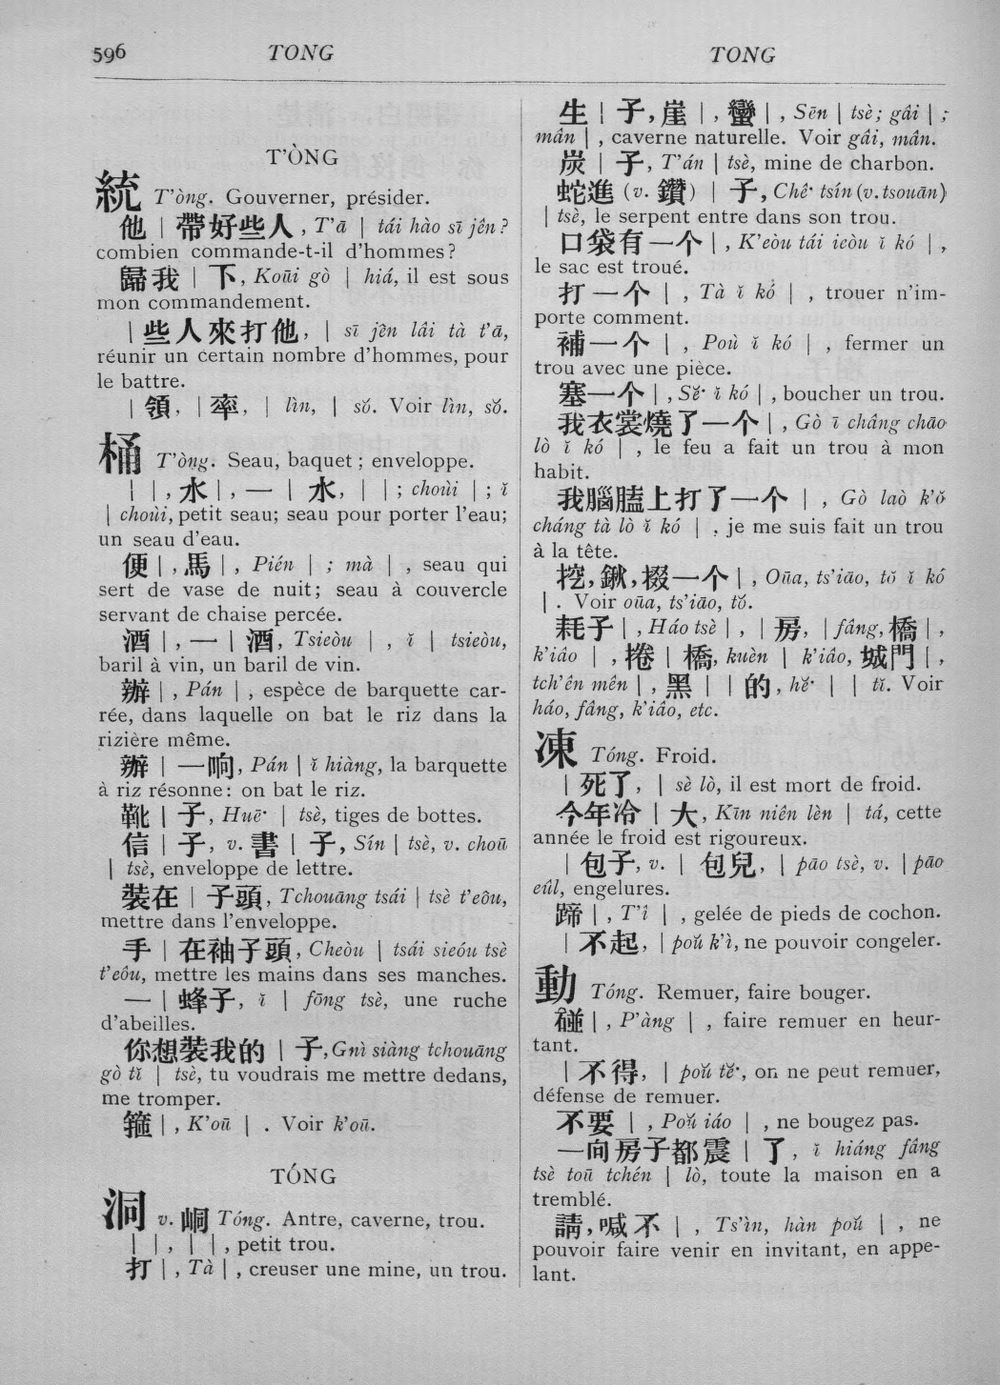 596 TONG TONG
T'ÒNG
統 T'òng. Gouverner, présider.
他 | 帶好些人, T'ā | tái hào sī jên?
combien commande-t-il d'hommes?
歸我 | 下, Koūi gò | hiá, il est sous
mon commandement.
| 些人來打他, | sī jên lâi tà t'ā,
réunir un certain nombre d'hommes, pour
le battre.
| 領, | 率, | lìn, | sŏ. Voir lìn, sŏ.
桶 T'òng. Seau, baquet; enveloppe.
| |, 水 |, 一 | 水, | |; choùi |; ĭ
| choùi, petit seau; seau pour porter l'eau;
un seau d'eau.
便 |, 馬 |, Pién | ; mà | , seau qui
sert de vase de nuit; seau à couvercle
servant de chaise percée.
酒 |, 一 | 酒, Tsieòu | , ĭ | tsieòu,
baril à vin, un baril de vin.
辦 | , Pán | , espèce de barquette car-
rée, dans laquelle on bat le riz dans la
rizière même.
辦 | 一响, Pán | ĭ hiàng, la barquette
à riz résonne: on bat le riz.
靴 | 子, Huē· | tsè, tiges de bottes.
信 | 子, v. 書 | 子, Sín | tsè, v. choū
| tsè, enveloppe de lettre.
裝在 | 子頭, Tchouāng tsái | tsè t'eôu,
mettre dans l'enveloppe.
手 | 在袖子頭, Cheòu | tsái sieóu tsè
t'eôu, mettre les mains dans ses manches.
一 | 蜂子, ĭ | fōng tsè, une ruche
d'abeilles.
你想裝我的 | 子, Gnì siàng tchouāng
gò tĭ | tsè, tu voudrais me mettre dedans,
me tromper.
箍 | , K'oū | . Voir k'oū.
TÓNG
洞 v. 峒 Tóng. Antre, caverne, trou.
| |, | |, petit trou.
打 | , Tà | , creuser une mine, un trou.
生 | 子, 崖 | , 蠻 | , Sēn | tsè; gâi | ;
mân | , caverne naturelle. Voir gâi, mân.
炭 | 子, T'án | tsè, mine de charbon.
蛇進 (v. 鑽) | 子, Chê· tsín (v. tsouān)
| tsè, le serpent entre dans son trou.
口袋有一个 | , K'eòu tái ieòu ĭ kó | ,
le sac est troué.
打一个 | , Tà ĭ kó | , trouer n'im-
porte comment.
補一个 | , Poù ĭ kó | , fermer un
trou avec une pièce.
塞一个 | , Sĕ· ĭ kó | , boucher un trou.
我衣裳燒了一个 | , Gò ī châng chāo
lò ĭ kó | , le feu a fait un trou à mon
habit.
我腦𦡀上打了一个 | , Gò laò k'ŏ
cháng tà lò ĭ kó | , je me suis fait un trou
à la tête.
挖, 鍬, 掇一个 | , Oūa, ts'iāo, tŏ ĭ kó
| . Voir oūa, ts'iāo, tŏ.
耗子 | , Háo tsè | , | 房, | fâng, 橋 | ,
k'iâo | , 捲 | 橋, kuèn | k'iâo, 城門 | ,
tch'ên mên | , 黑 | | 的, hĕ· | | tĭ. Voir
háo, fâng, k'iâo, etc.
凍 Tóng. Froid.
| 死了, | sè lò, il est mort de froid.
今年冷 | 大, Kīn niên lèn | tá, cette
année le froid est rigoureux.
| 包子, v. | 包兒, | pāo tsè, v. | pāo
eûl, engelures.
蹄 | , T'î | , gelée de pieds de cochon.
| 不起, | poŭ k'ì, ne pouvoir congeler.
動 Tóng. Remuer, faire bouger.
碰 | , P'àng | , faire remuer en heur-
tant.
| 不得, | poŭ tĕ·, on ne peut remuer,
défense de remuer.
不要 | , Poŭ iáo | , ne bougez pas.
一向房子都震 | 了, ĭ hiáng fâng
tsè toū tchén | lò, toute la maison en a
tremblé.
請, 喊不 | , Ts'ìn, hàn poŭ | , ne
pouvoir faire venir en invitant, en appe-
lant.